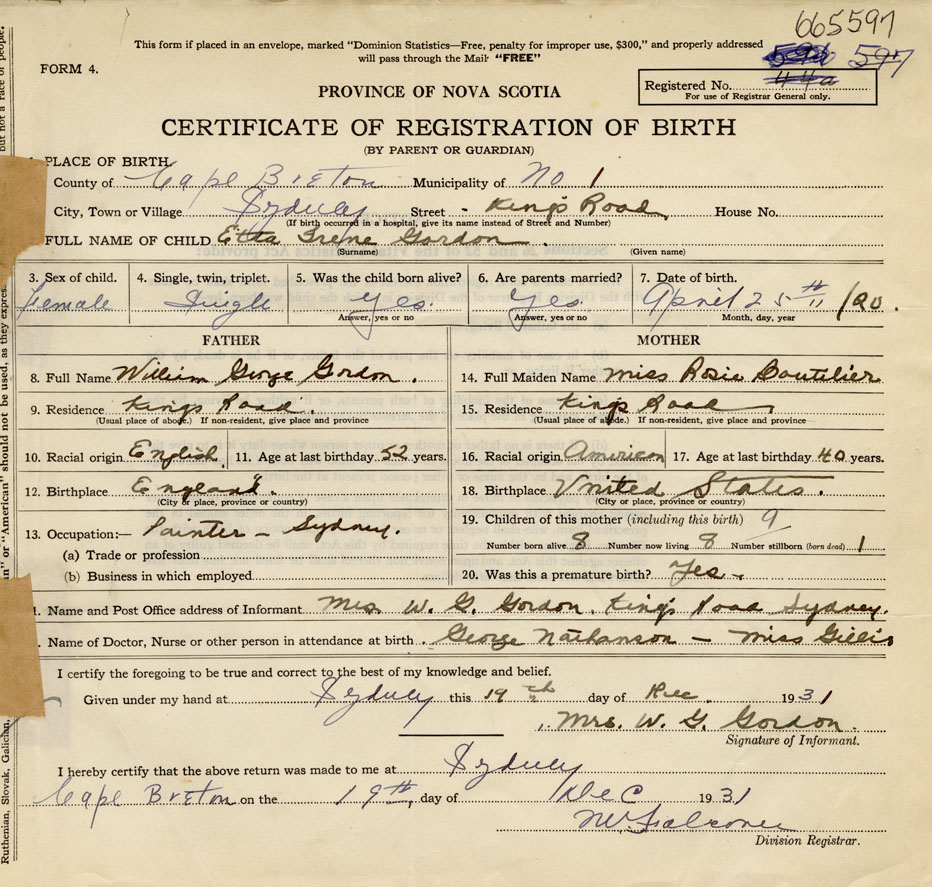 665597
This form if placed in an envelope, marked "Dominion Statistics—Free, penalty for improper use, $300," and properly addressed
will pass through the Mail "FREE"
597
FORM 4.
Registered No. 44a
For use of Registrar General only.
PROVINCE OF NOVA SCOTIA
CERTIFICATE OF REGISTRATION OF BIRTH
(BY PARENT OR GUARDIAN)
1. PLACE OF BIRTH.
County of Cape Breton Municipality of No 1
City, Town or Village Sydney Street - Kings Road House No.
(If birth occurred in a hospital, give its name instead of Street and Number)
FULL NAME OF CHILD Etta Irene Gordon.
(Surname) (Given name)
3. Sex of child. 4. Single, twin, triplet. 5. Was the child born alive? 6. Are parents married? 7. Date of birth.
Female Single Yes. Yes. April 25th /20.
Answer, yes or no Answer, yes or no Month, day, year
FATHER MOTHER
8. Full Name William George Gordon. 14. Full Maiden Name Miss Rosie Boutilier
9. Residence Kings Road. 15. Residence Kings Road
(Usual place of abode.) If non-resident, give place and province (Usual place of abode.) If non-resident, give place and province
10. Racial origin English. 11. Age at last birthday 52 years. 16. Racial origin American 17. Age at last birthday 40 years.
12. Birthplace England. 18. Birthplace United States.
(City or place, province or country) (City or place, province or country)
13. Occupation:— Painter - Sydney. 19. Children of this mother (including this birth) 9
(a) Trade or profession Number born alive 8 Number now living 8 Number stillborn (born dead) 1
(b) Business in which employed 20. Was this a premature birth? Yes -
1. Name and Post Office address of Informant Mrs. W. G. Gordon. King's Road Sydney.
. Name of Doctor, Nurse or other person in attendance at birth. George Nathanson — Miss Gillis
I certify the foregoing to be true and correct to the best of my knowledge and belief.
Given under my hand at Sydney this 19th day of Dec. 1931
Mrs. W. G. Gordon.
Signature of Informant.
I hereby certify that the above return was made to me at Sydney
Cape Breton on the 19th day of Dec 1931
Division Registrar.
but not a race or people.
an" or "American" should not be used, as they expres
Ruthenian, Slovak, Galician,